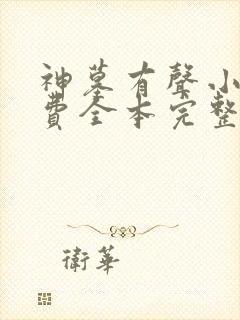 神墓有聲小
費全本完整
衛華